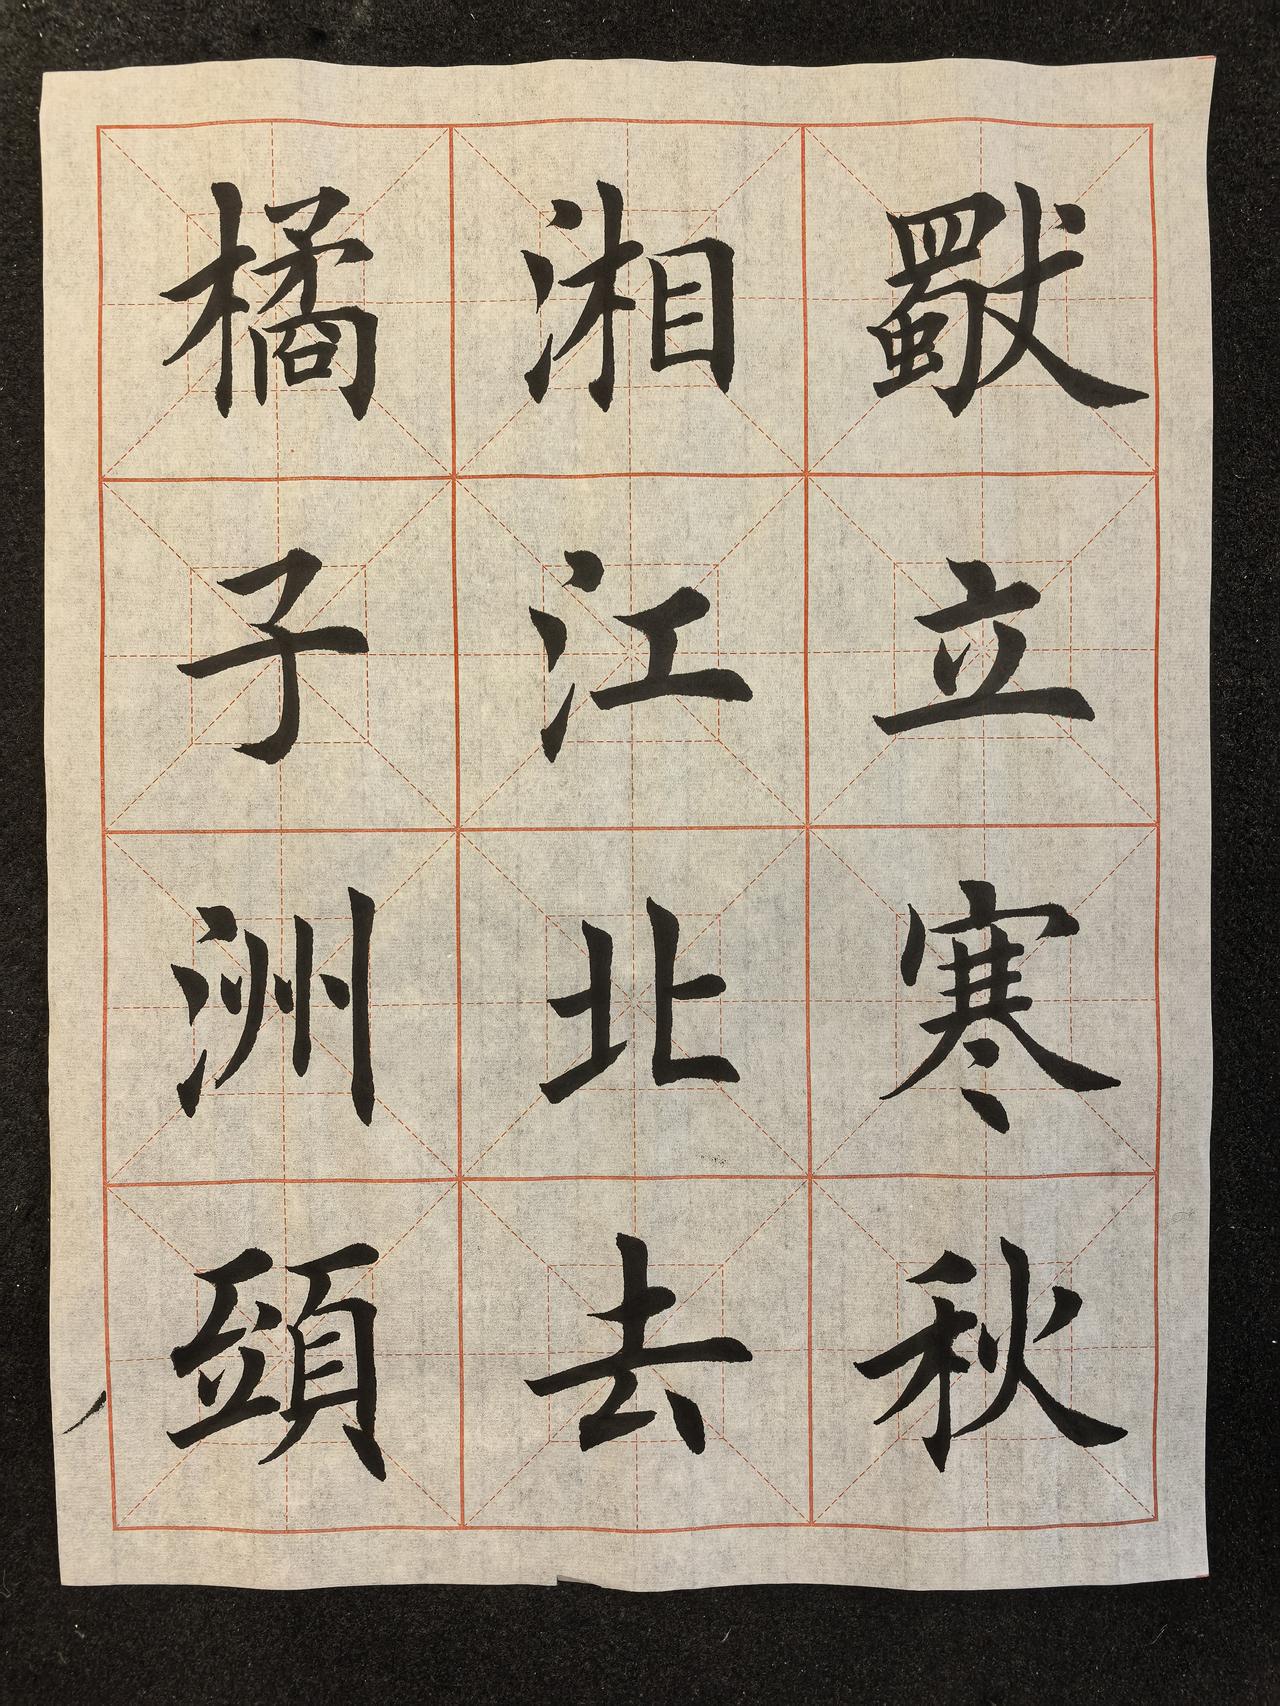 獨立寒秋
湘江北去
橘子洲頭